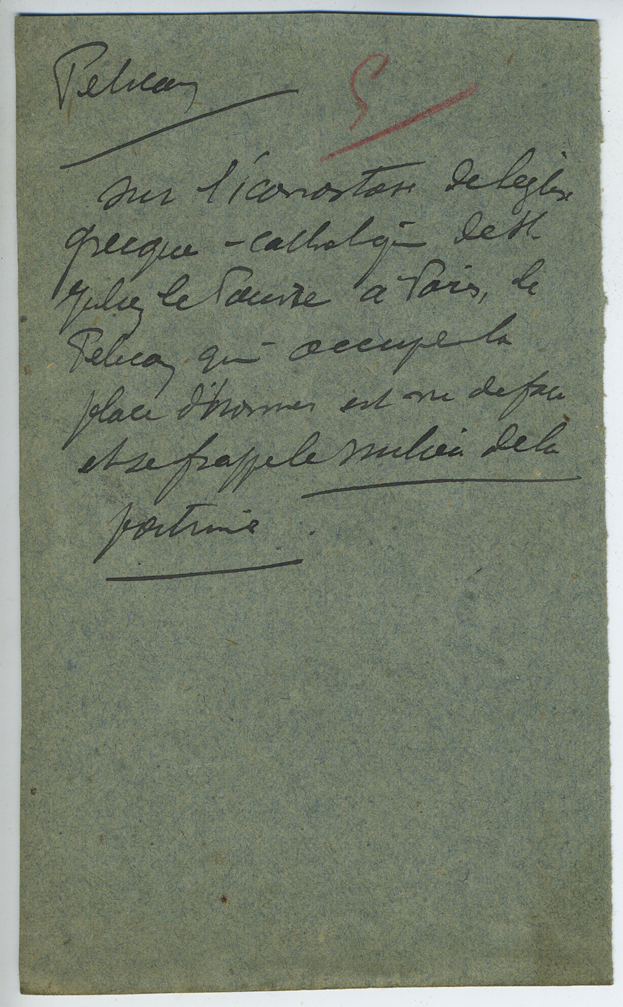 Pelican
S
sur l'iconostase de l'église
grecque-catholique de St.
Julien le Pauvre à Paris, le
Pelican qui occupe la
place d'honneur est vu de face
et se frappe le milieu de la
poitrine.